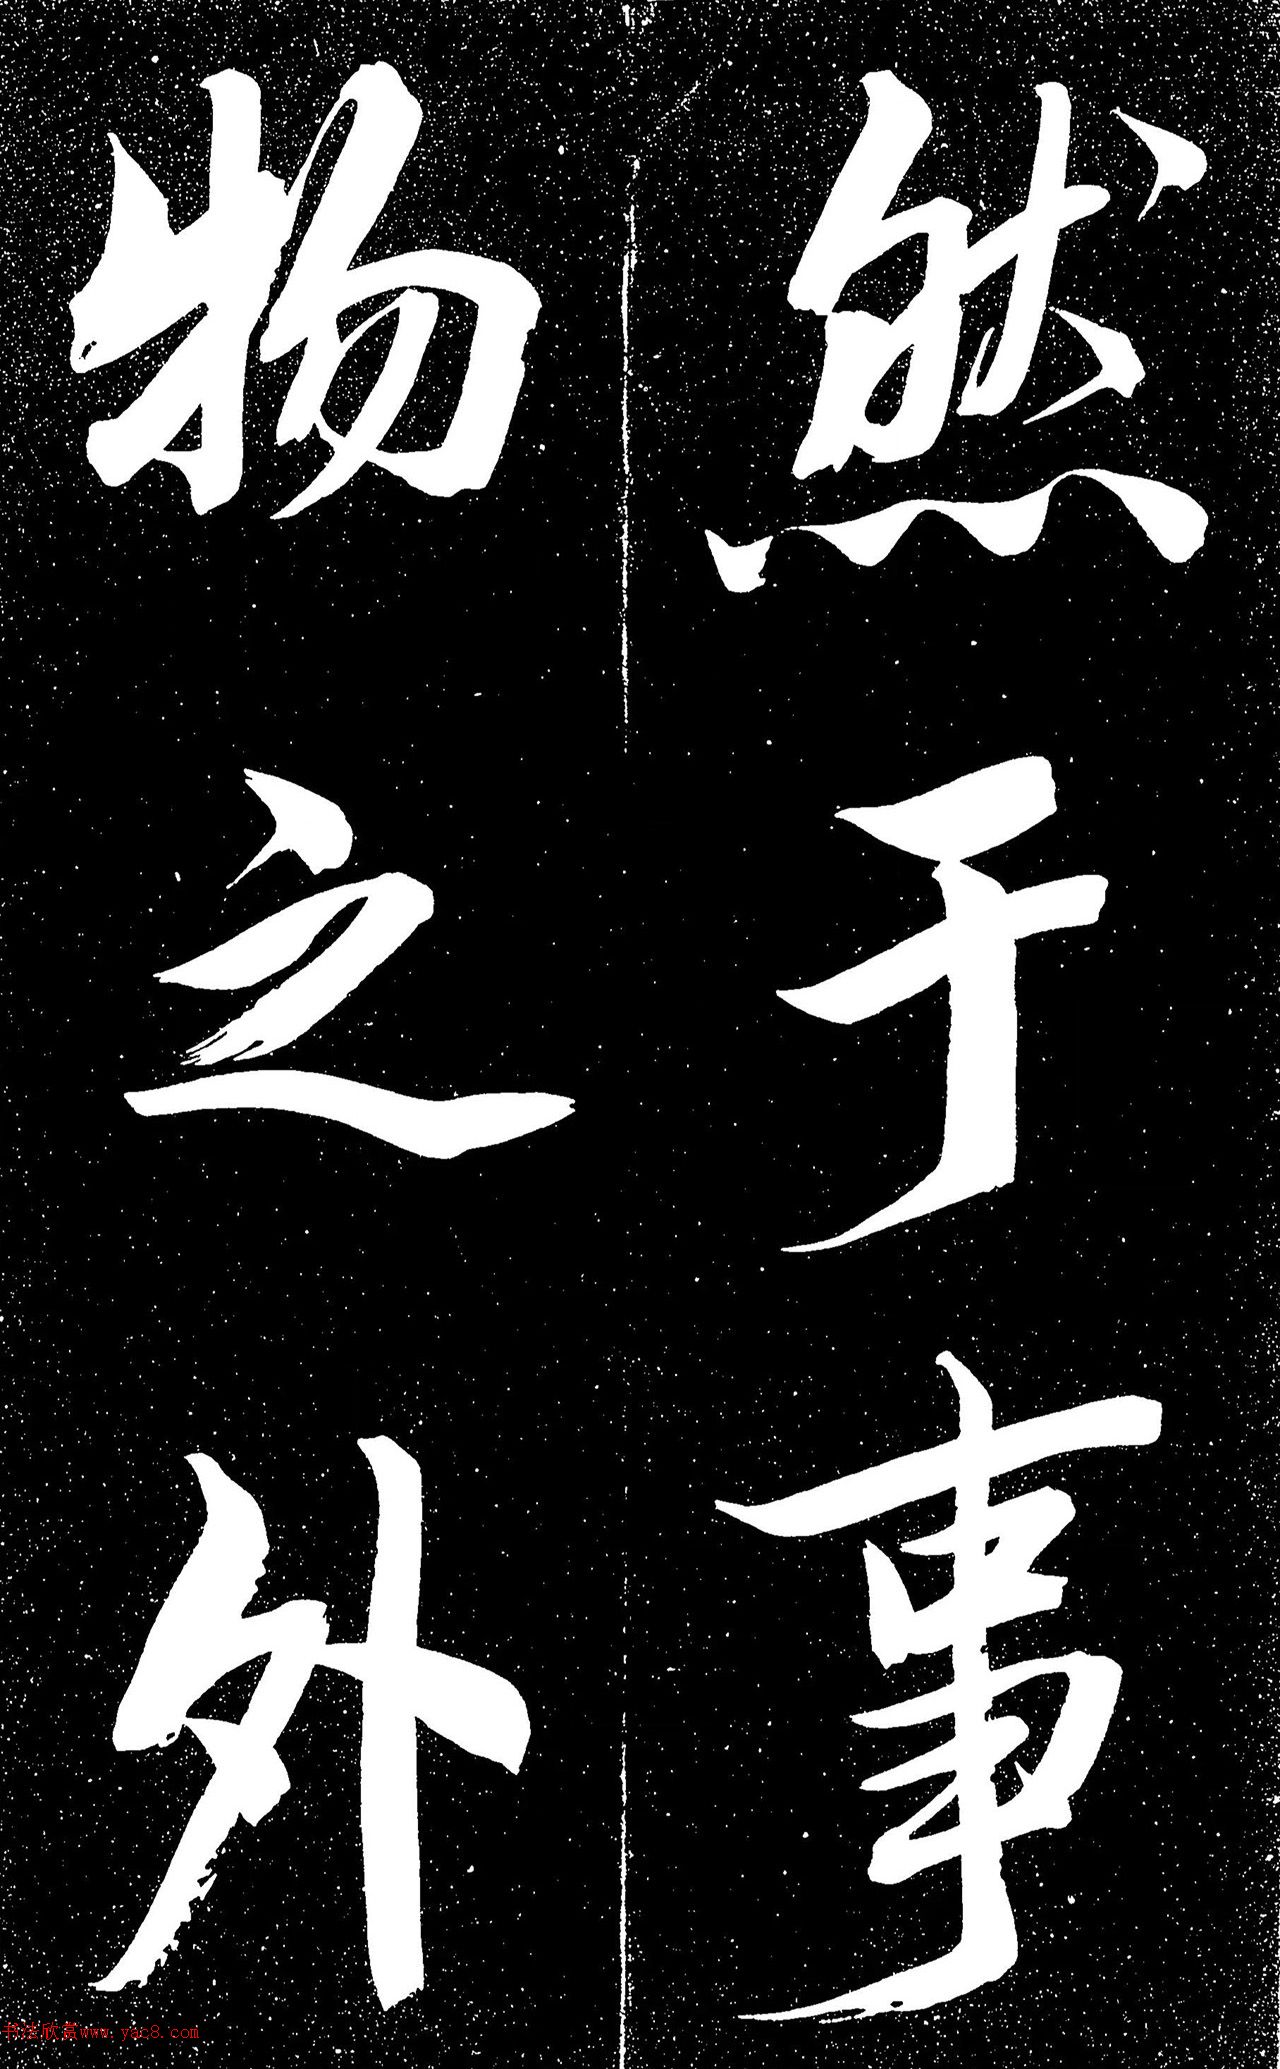 然于事
物之外
书法欣赏www.yac8.com